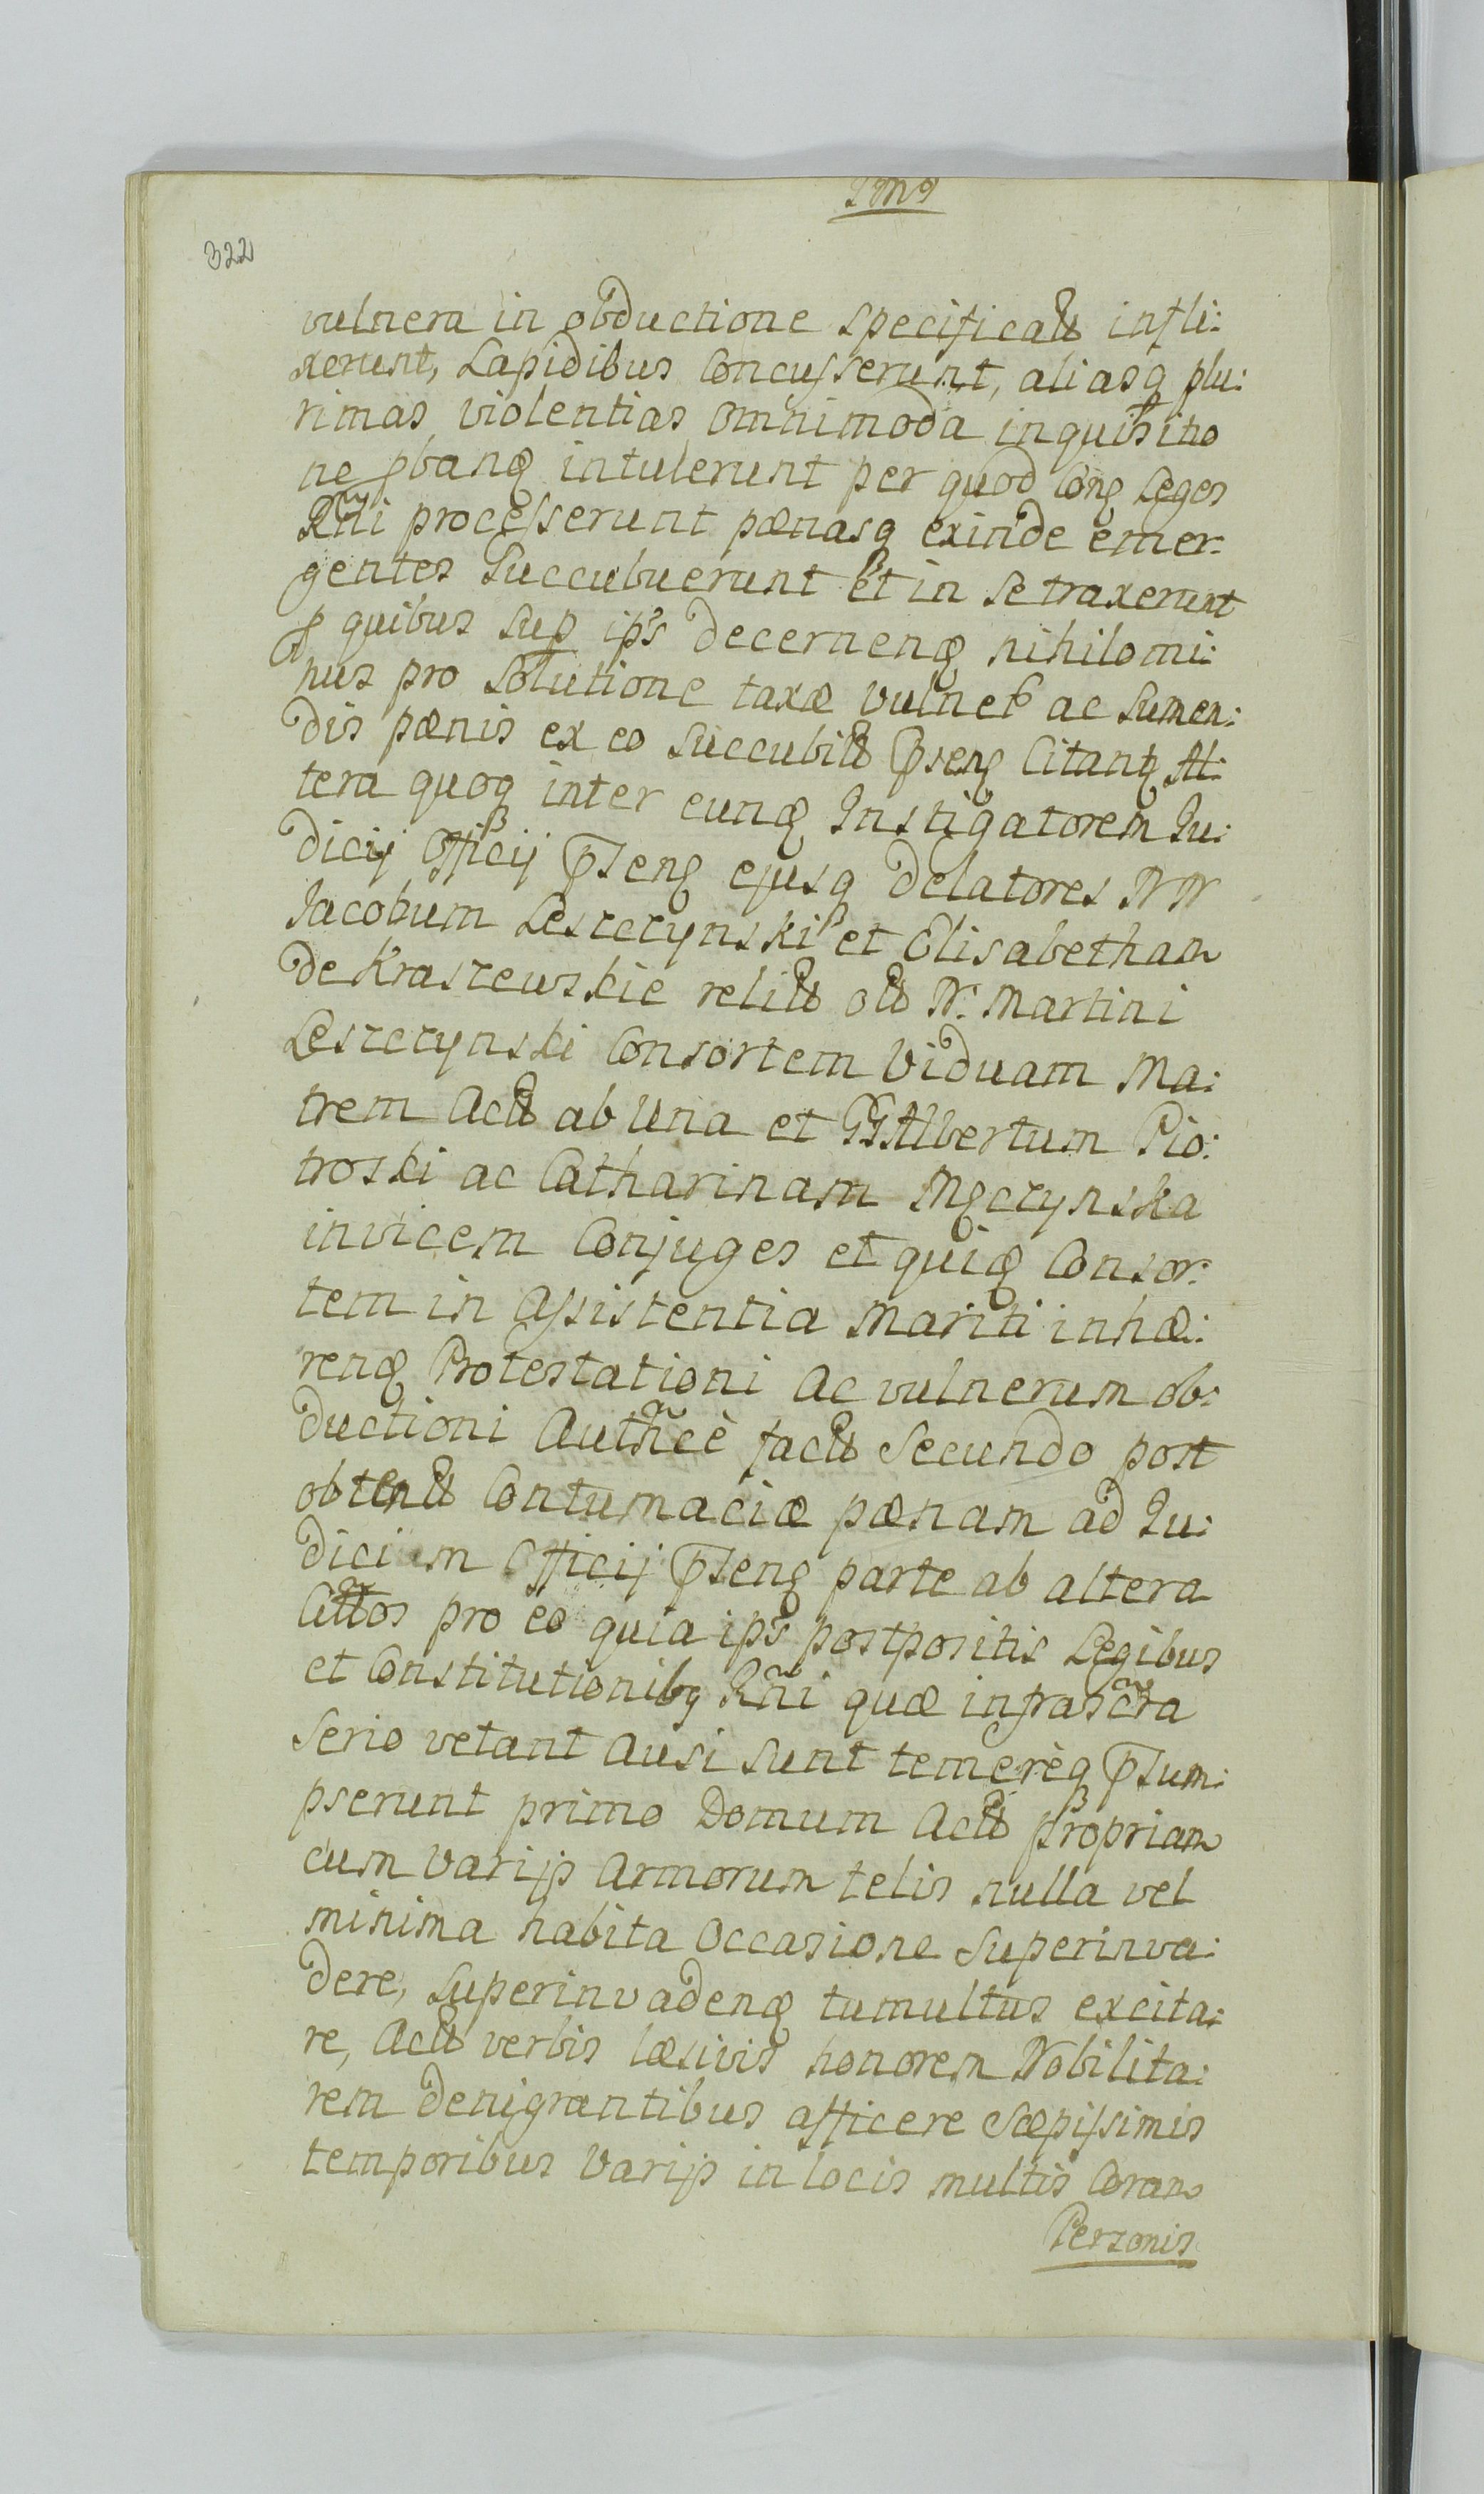 322
vulnera in obductione specificata infli:
xerunt, Lapidibus Concusserunt, aliasq plu:
rimas violentias omnimoda inquisitio
ne pbanđ intulerunt per quod Conđ Leges
Rñi processerunt pænasq exinde emer:
gentes Succubuerunt et in se traxerunt
p quibus Sup ip̃s decernenđ nihilomi:
nus pro Solutione taxæ vulner ac Sumen:
dis pænis ex eo Succubit p̄senđ Citanđ Al:
tera quoq inter eunđ Instigatorem Ju:
dicij Officij p̄senđ ejusq Delatores NN
Jacobum Leszczynski et Elisabetham
de Kraszewskie relict olt N: Martini
Leszczynski Consortem Viduam Ma:
trem Act ab Una et GG Albertum Pio:
troski ac Catharinam Męczynska
invicem Conjuges et quiđ Consor:
tem in Assistentia Mariti inhæ:
renđ Protestationi ac vulnerum ob:
ductioni Authñcè fact Secundo post
obtent Contumaciæ pænam ad Ju:
dicium Officij p̄senđ parte ab altera
Cittos pro eo quia ip̃s postpositis Legibus
et Constitutionibq Rñi quæ infrascr̃ta
Serio vetant Ausi Sunt temerèq p̄sum:
pserunt primo Domum Act propriam
cum Varijs Armorum telis nulla vel
minima habita Occasione Superinva:
dere, Superinvadenđ tumultus excita:
re, Act verbis læsivis honorem Nobilita:
rem denigrantibus afficere Sæpissimis
temporibus Varijs in locis multis Coram
Personis